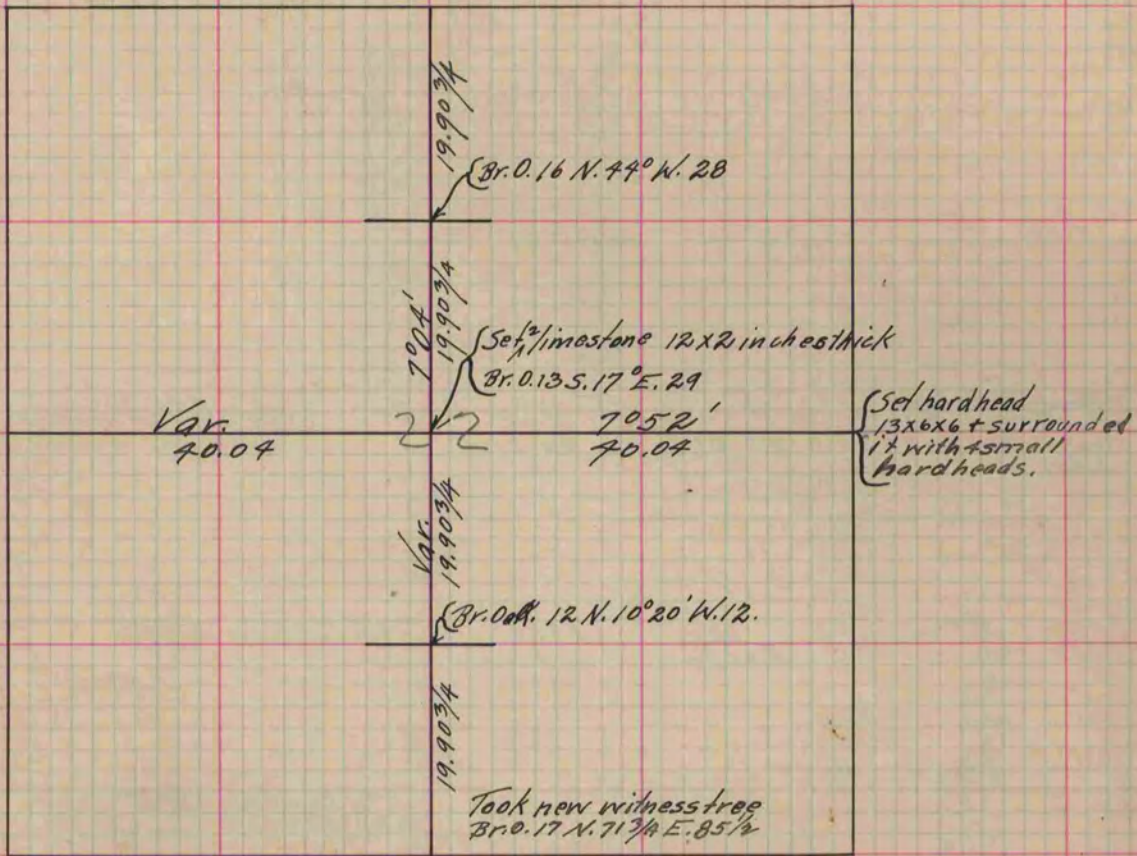 19.90 3/4
Br. O. 16 N. 44° W. 28
19.90 3/4
7° 04'
Set 2 limestone 12 x 2 inches thick
Br. O. 13 S. 17° E. 29
Var.
40.04
22
7° 52'
40.04
Set hardhead
13x6x6 + surrounded
it with 4 small
hardheads.
Var.
19.90 3/4
Br. Oak. 12 N. 10° 20' W. 12.
19.90 3/4
Took new witness tree
Br. O. 17 N. 71 3/4 E. 85 1/2